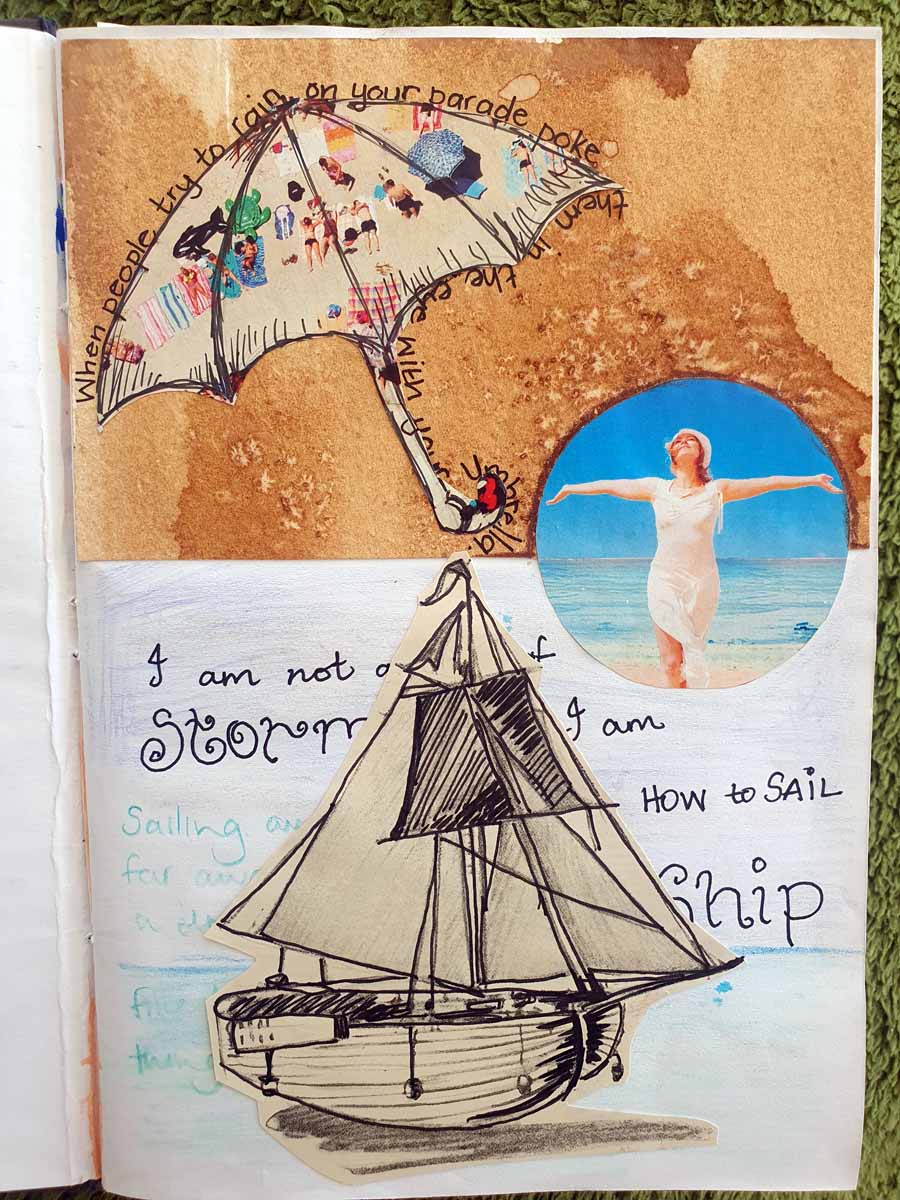 When people try to rain on your parade poke
them in the eye with your umbrella.
I am not
Storm I am
HOW to SAIL
Ship
Sailing
far
a